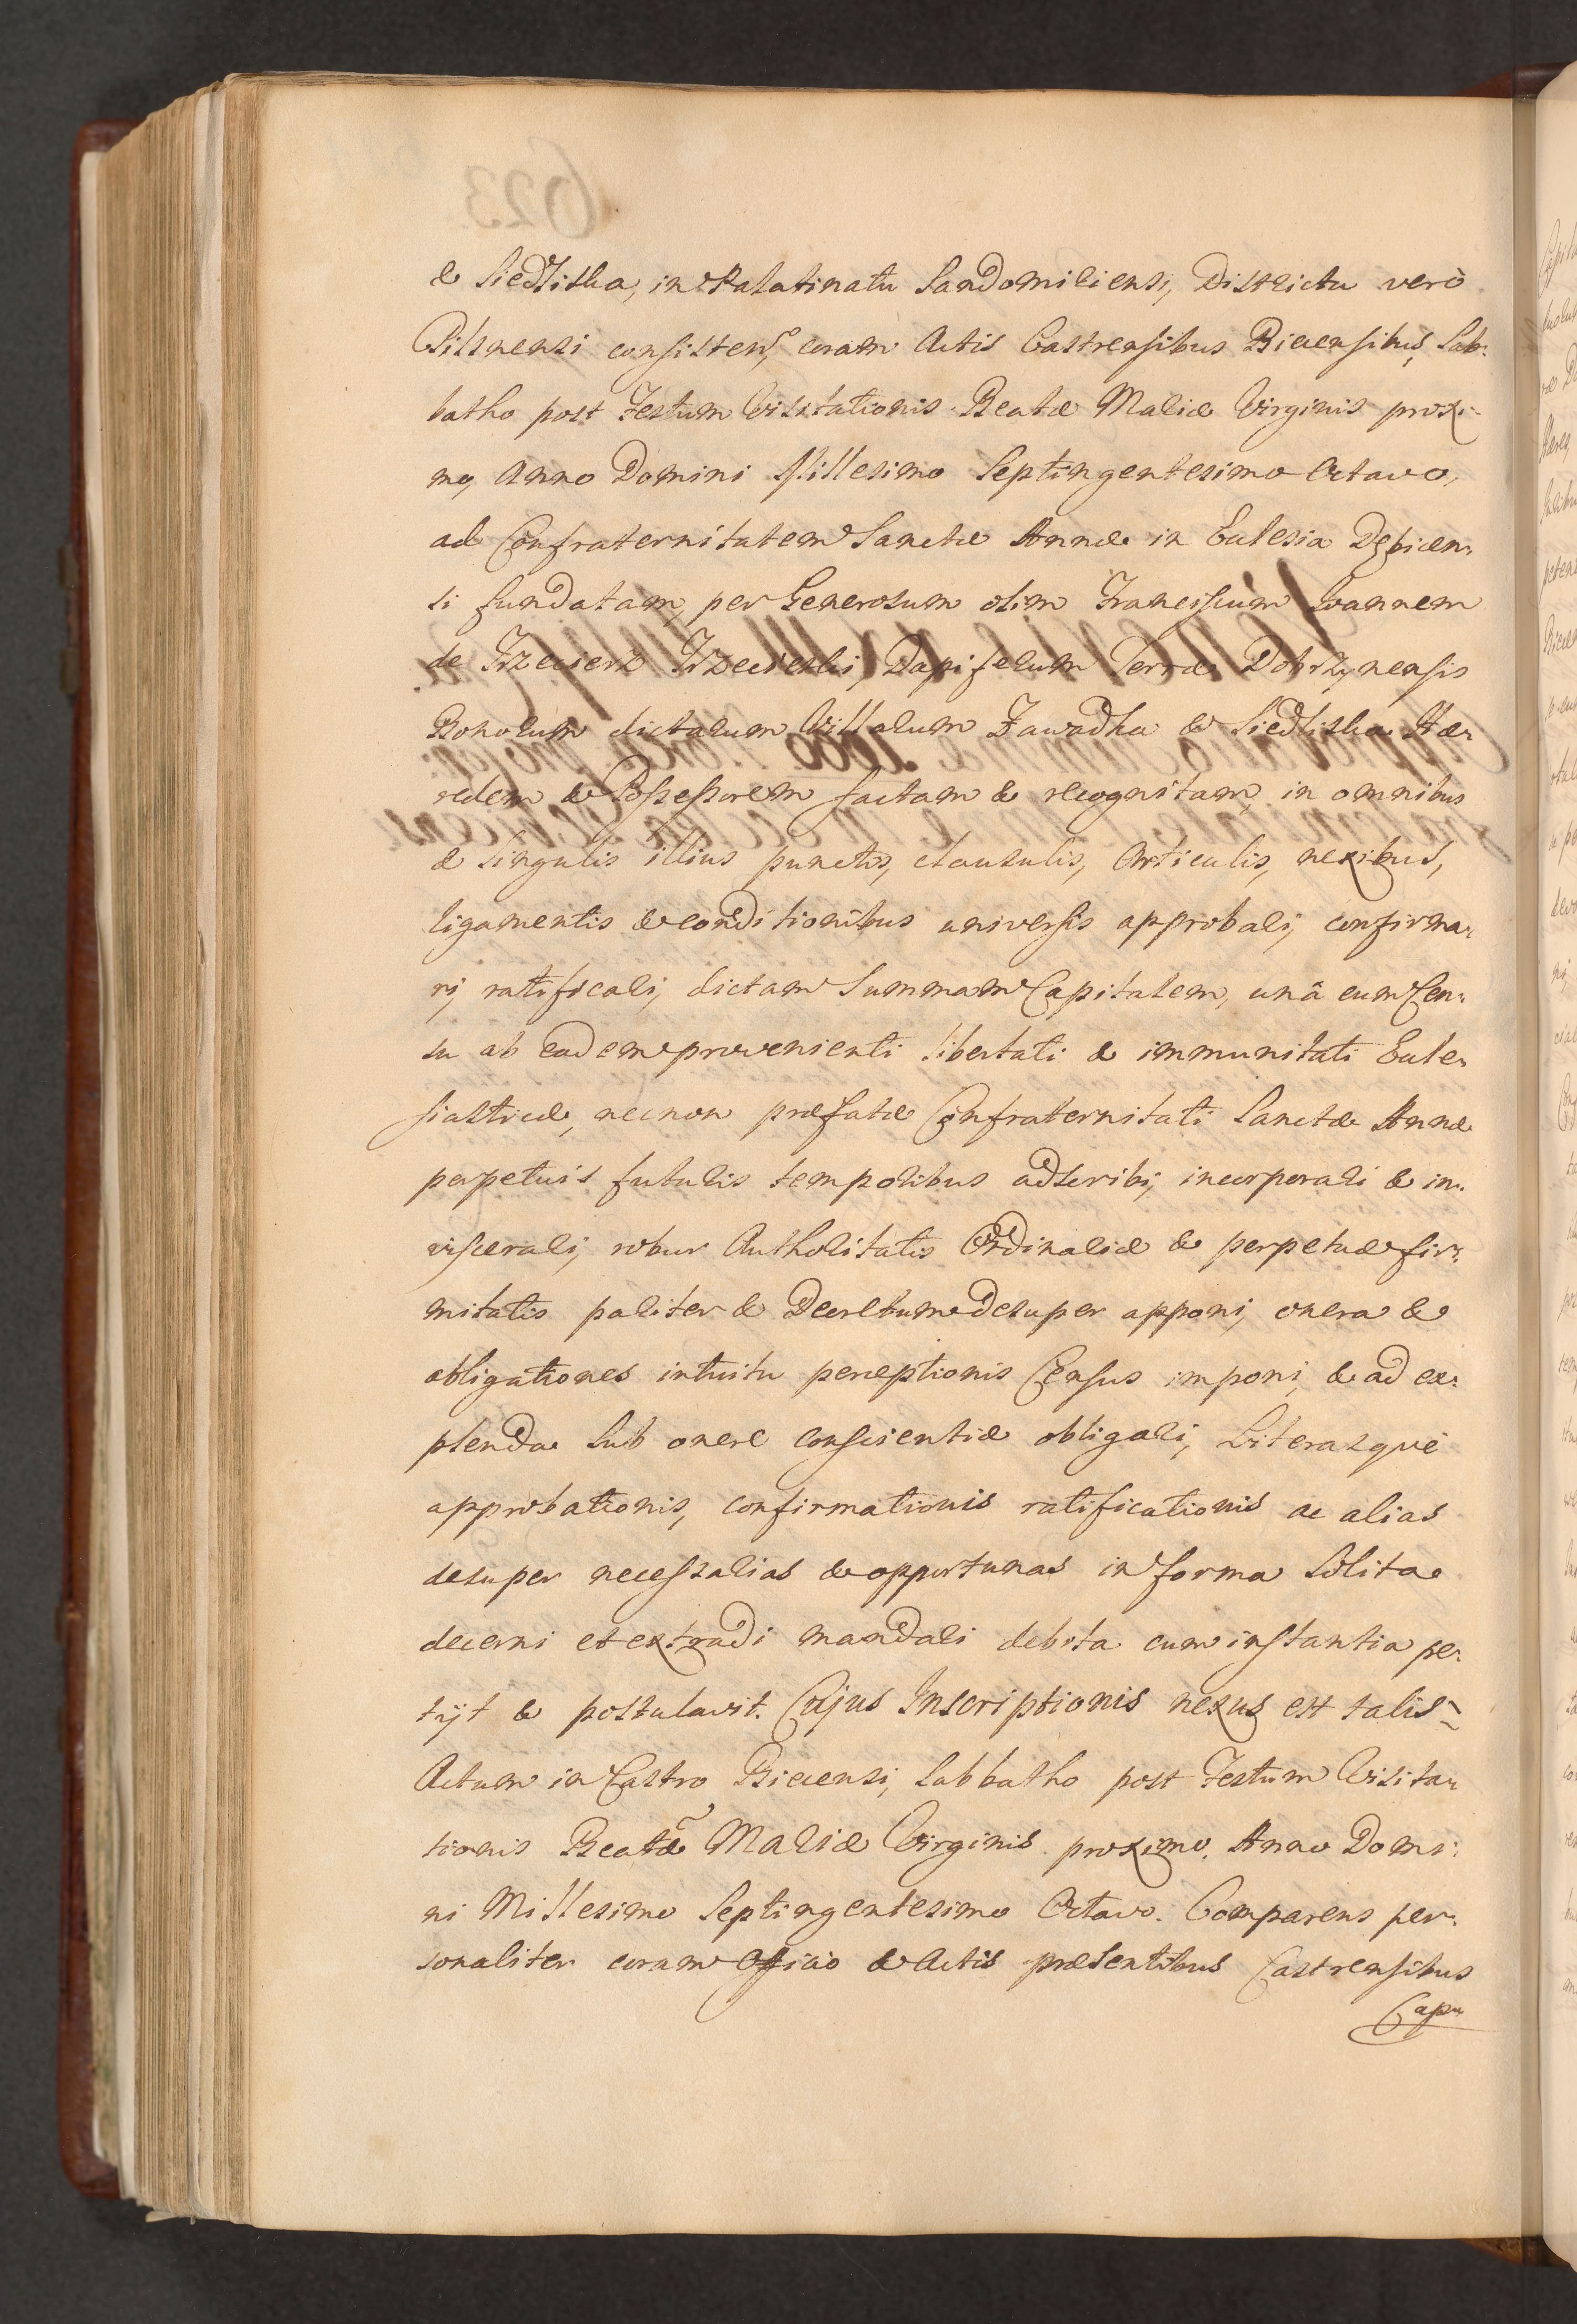 & Siedliska, in Palatinatu Sandomiriensi, Districtu verò
Pilsnensi consisten, coram Actis Castrensibus Biecensibus, Sab-
batho post Festum Visitationis Beatæ Mariæ Virginis proxi-
mo, Anno Domini Millesimo Septingentesimo Octavo,
ad Confraternitatem Sanctæ Annæ in Eclesia Dębicen-
si fundatam, per Generosum olim Franciscum Joannem
de Trzecierz Trzecieski, Dapiferum Terræ Dobrzynensis
Bonorum dictarum Villarum Zawadka & Siedliska Hæ-
redem & Possessorem factam & recognitam, in omnibus
& singulis illius punctis, clausulis, Articulis, nexibus,
ligamentis & conditionibus universis approbari, confirma-
ri, ratificari, dictam Summam Capitalem, unâ cum Cen-
su ab eadem provenienti libertati & immunitati Ecle-
siasticæ, necnon præfatæ Confraternitati Sanctæ Annæ
perpetuis futuris temporibus adscribi, incorporari & in-
viscerari, robur Authoritatis Ordinariæ & perpetuæ fir-
mitatis pariter & Decretum desuper apponi, onera &
obligationes intuitu perceptionis Census imponi, & ad ex-
plenda sub onere conscientiæ obligari, Literasquè
approbationis, confirmationis ratificationis ac alias
desuper necessarias & opportunas in forma solita
decerni et extradi mandari debita cum instantia pe-
tijt & postulavit. Cujus Inscriptionis nexus est talis
Actum in Castro Biecensi, Sabbatho post Festum Visita-
tionis Beatæ Mariæ Virginis proximo, Anno Domi-
ni Millesimo Septingentesimo Octavo. Comparens per-
sonaliter coram Officio & Actis præsentibus Castrensibus
Capi